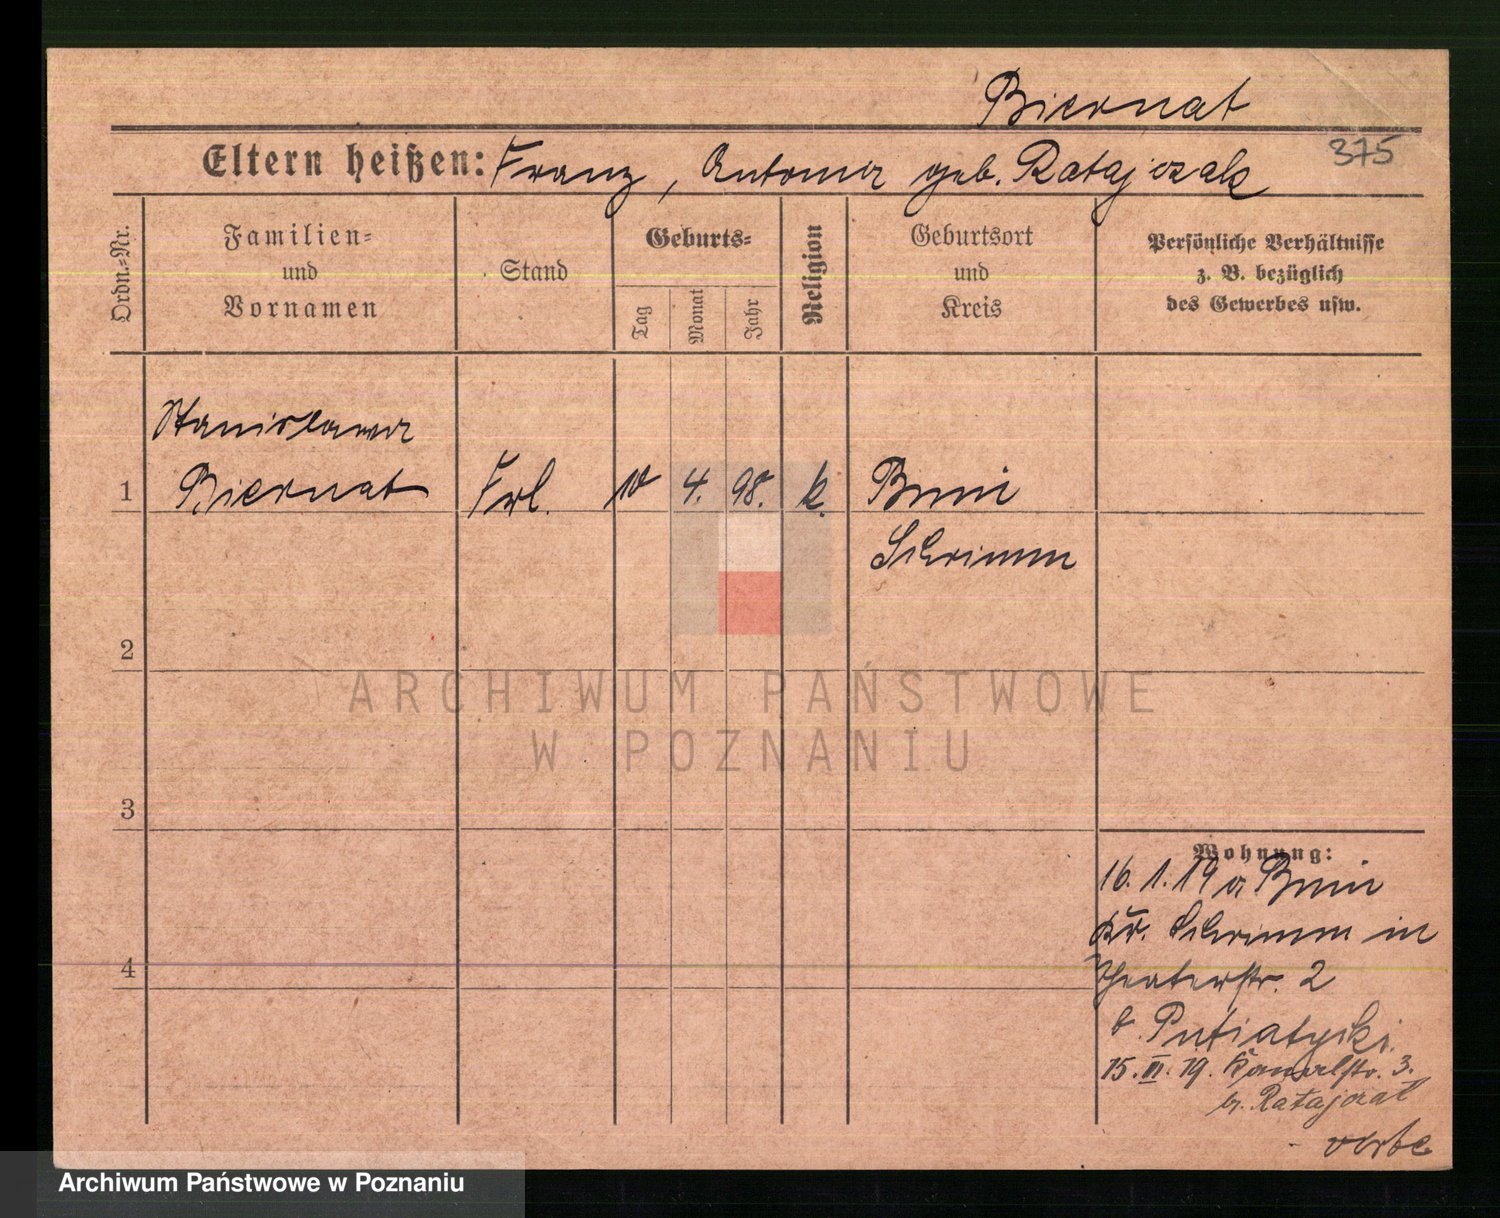 Biernat
375
Eltern heißen: Franz, Antonia geb. Ratajczak
Ordn.-Nr.
Familien-
und
Vornamen
Stand
Geburts-
Tag
Monat
Jahr
Religion
Geburtsort
und
Kreis
Persönliche Verhältnisse
z. B. bezüglich
des Gewerbes usw.
Stanislawa
1 Biernat Frl. 10 4. 98. k. Bnin
Schrimm
2
ARCHIWUM PAŃSTWOWE
W POZNANIU
3
Wohnung:
16. 1. 19 v. Bnin
Kr. Schrimm in
4
Theaterstr. 2
b. Putiatycki.
15. III. 19. Kanalstr. 3.
b. Ratajczak
Archiwum Państwowe w Poznaniu